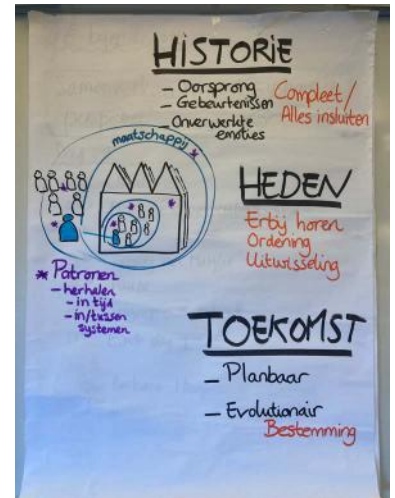 HISTORIE
– Oorsprong
– Gebeurtenissen
– Onverwerkte
emoties
Compleet/
Alles insluiten
maatschappij *
HEDEN
Erbij horen
Ordening
Uitwisseling
* Patronen
– herhalen
– in tijd
– in/tussen
systemen
TOEKOMST
– Planbaar
– Evolutionair
Bestemming